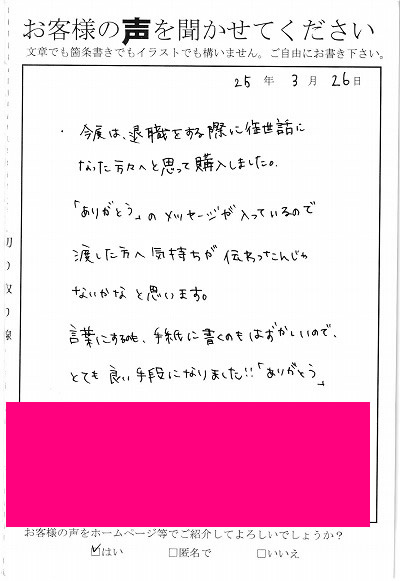 お客様の声を聞かせてください
文章でも箇条書きでもイラストでも構いません。ご自由にお書き下さい。
25 年 3 月 26 日
・今度は、退職をする際に往世話に
なった方々へと思って購入しました。
「ありがとう」のメッセージが入っているので
渡した方へ気持ちが伝わったんじゃ
ないかなと思います。
言葉にするも、手紙に書くのもはずかしいので、
とても良い手段になりました!!「ありがとう」
切り取り線
お客様の声をホームページ等でご紹介してよろしいでしょうか?
☑はい □匿名で □いいえ